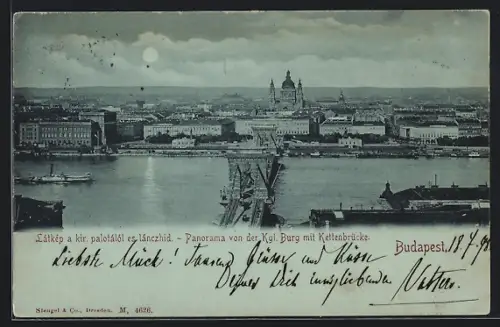 Látkép a kir. palotától es lánczhid. - Panorama von der Kgl. Burg mit Kettenbrücke.
Budapest, 18/4 98
Liebste Muck! Tausend Grüsse und Küsse
Deines Dich innigliebenden Vatters.
Stengel & Co., Dresden. M, 4626.